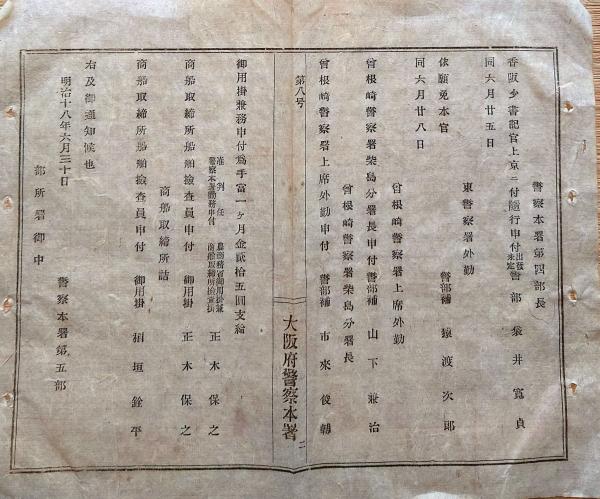 警察本署第四部長
香阪少書記官上京ニ付随行申付 出發未定 警部 袋井寬貞
同六月廿五日
東警察署外勤
警部補 猿渡次郎
依願免本官
同六月廿八日
曾根崎警察署上席外勤
曾根崎警察署柴島分署長申付 警部補 山下兼治
曾根崎警察署柴島分署長
曾根崎警察署上席外勤申付 警部補 市來俊
大阪府警察本署
二
第八号
御用掛兼務申付爲手當一ヶ月金貳拾五圓支給
准判任
警察本署勤務申付
農商務省御用掛兼
商船取締所檢査掛
正木保之
商船取締所船舶檢査員申付 御用掛 正木保之
商船取締所詰
商船取締所船舶檢査員申付 御用掛 垣銓平
右及御通知候也
明治十八年六月三十日
警察本署第五部
部所署御中